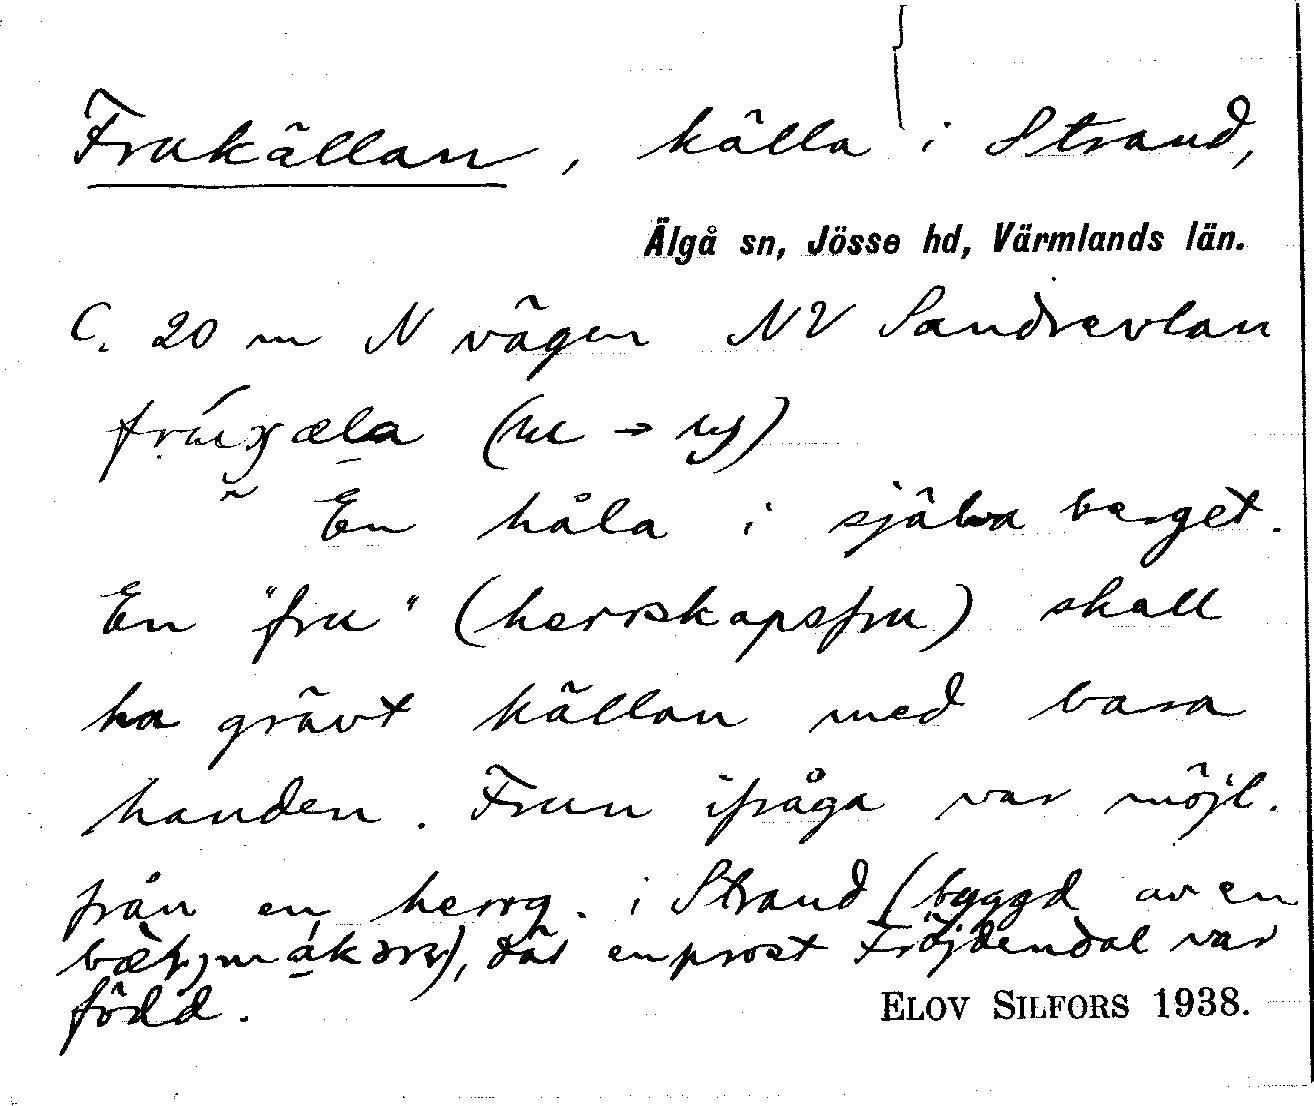 Frukällan, källa i Strand,
Älgå sn, Jösse hd, Värmlands län.
C. 20 m N vägen NV Sandrevlan
En håla i själva berget.
En "fru" (herrskapsfru) skall
ha grävt källan med bara
handen. Frun ifråga var möjl.
från en herrg. i Strand (byggd av en
där en prost Fröjdendal var
född.
ELOV SILFORS 1938.